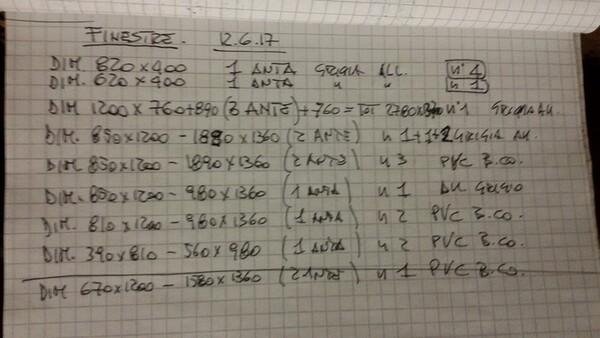 FINESTRE. 12.6.17
DIM. 820 x 400 1 ANTA GRIGIA ALL. n° 4
DIM. 620 x 400 1 ANTA " " n° 1
DIM 1200 x 760+890 (3 ANTE) + 760 = TOT n°1 GRIGIA ALL.
DIM. 850x1200 - 1880 x 1360 (2 ANTE) n 1+1+2 GRIGIA ALL.
DIM 850x1200 - 1890x1360 (2 ANTE) n 3 PVC B.CO.
DIM. 850x1200 - 980x1360 (1 ANTA) n 1 ALL GRIGIO
DIM. 810 x 1200 - 980x1360 (1 ANTA) n 2 PVC B.CO.
DIM. 390x810 - 560 x 980 (1 ANTA) n 2 PVC B.CO.
DIM 670x1200 - 1580x1360 (2 ANTE) n 1 PVC B.CO.